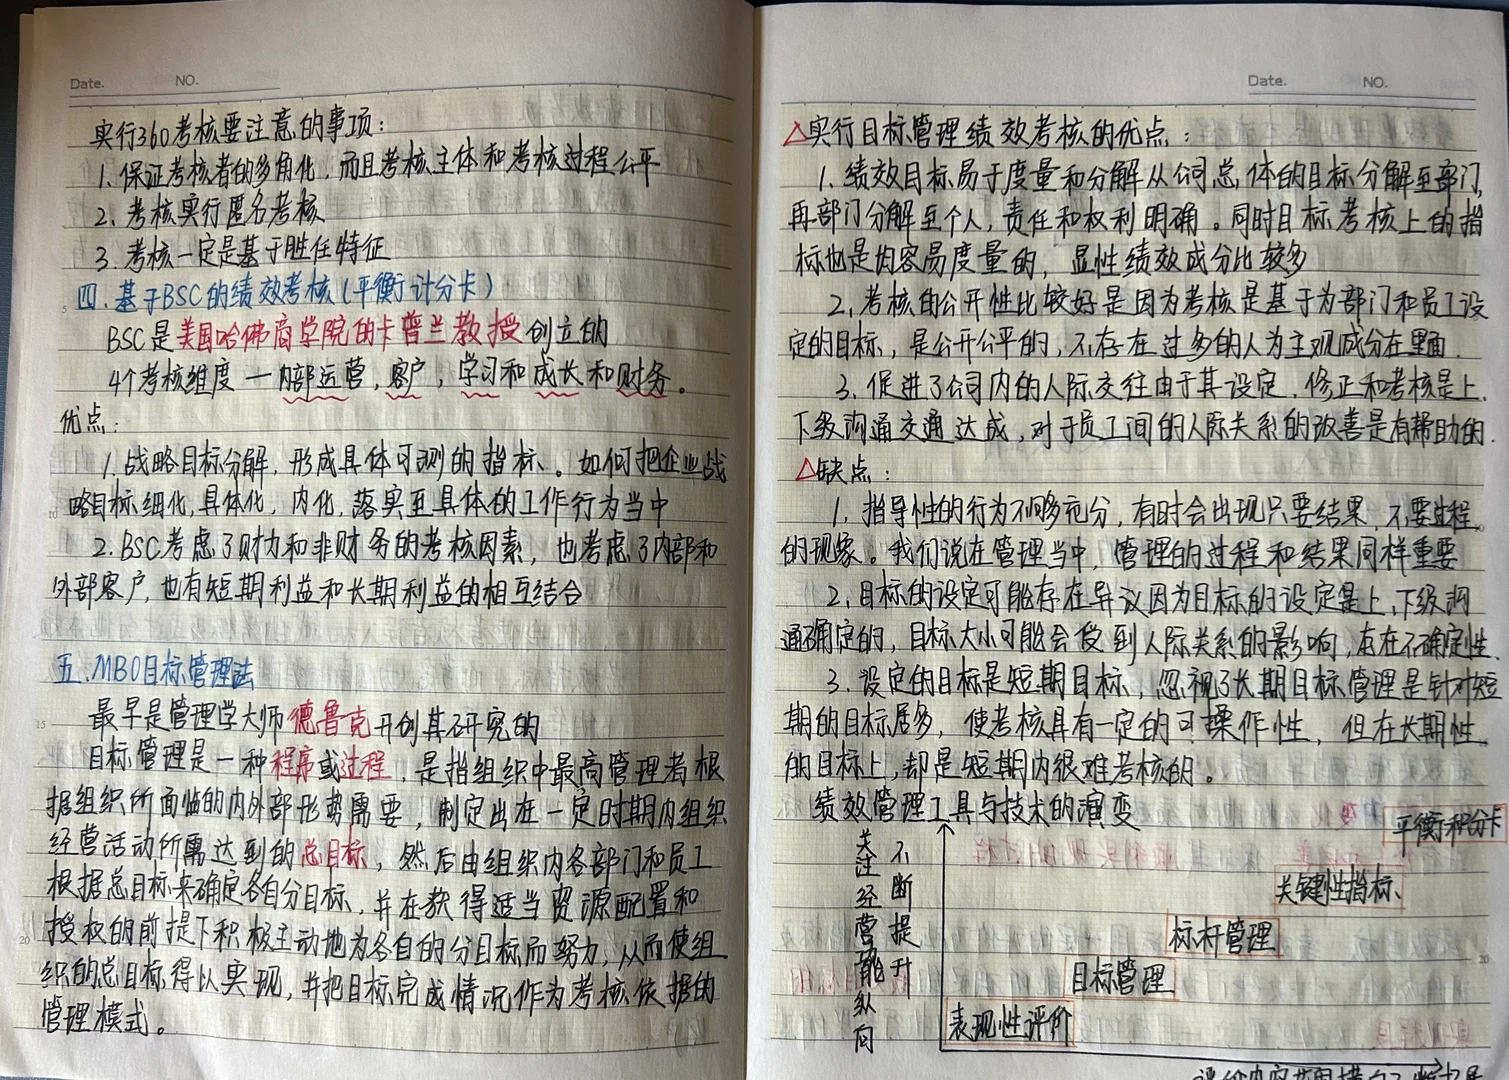 Date. NO.
实行360考核要注意的事项：
1. 保证考核者的多角化，而且考核主体和考核过程公平
2. 考核实行匿名考核
3. 考核一定是基于胜任特征
四. 基于BSC的绩效考核（平衡计分卡）
BSC是美国哈佛商学院的卡普兰教授创立的
4个考核维度 — 内部运营，客户，学习和成长和财务。
优点：
1. 战略目标分解，形成具体可测的指标。如何把企业战
略目标细化，具体化，内化，落实至具体的工作行为当中
2. BSC考虑了财力和非财务的考核因素，也考虑了内部和
外部客户，也有短期利益和长期利益的相互结合
五. MBO目标管理法
最早是管理学大师德鲁克开创其研究的
目标管理是一种程序或过程，是指组织中最高管理者根
据组织所面临的内外部形势需要，制定出在一定时期内组织
经营活动所需达到的总目标，然后由组织内各部门和员工
根据总目标来确定各自分目标，并在获得适当资源配置和
授权的前提下积极主动地为各自的分目标而努力，从而使组
织的总目标得以实现，并把目标完成情况作为考核依据的
管理模式。
Date. NO.
△实行目标管理绩效考核的优点：
1. 绩效目标易于度量和分解从公司总体的目标分解至部门，
再部门分解至个人，责任和权利明确。同时目标考核上的指
标也是内容易度量的，显性绩效成分比较多
2. 考核的公开性比较好是因为考核是基于为部门和员工设
定的目标，是公开公平的，不存在过多的人为主观成分在里面.
3. 促进了公司内的人际交往由于其设定.修正和考核是上.
下级沟通交通达成，对于员工间的人际关系的改善是有帮助的.
△缺点：
1. 指导性的行为不够充分，有时会出现只要结果，不要过程
的现象。我们说在管理当中，管理的过程和结果同样重要
2. 目标的设定可能存在异议因为目标的设定是上、下级沟
通确定的，目标大小可能会受到人际关系的影响，存在不确定性.
3. 设定的目标是短期目标，忽视了长期目标管理是针对短
期的目标居多，使考核具有一定的可操作性，但在长期性
的目标上，却是短期内很难考核的。
绩效管理工具与技术的演变
平衡积分卡
关键性指标
标杆管理
目标管理
表现性评价
关注经营现能纵向
不断提升